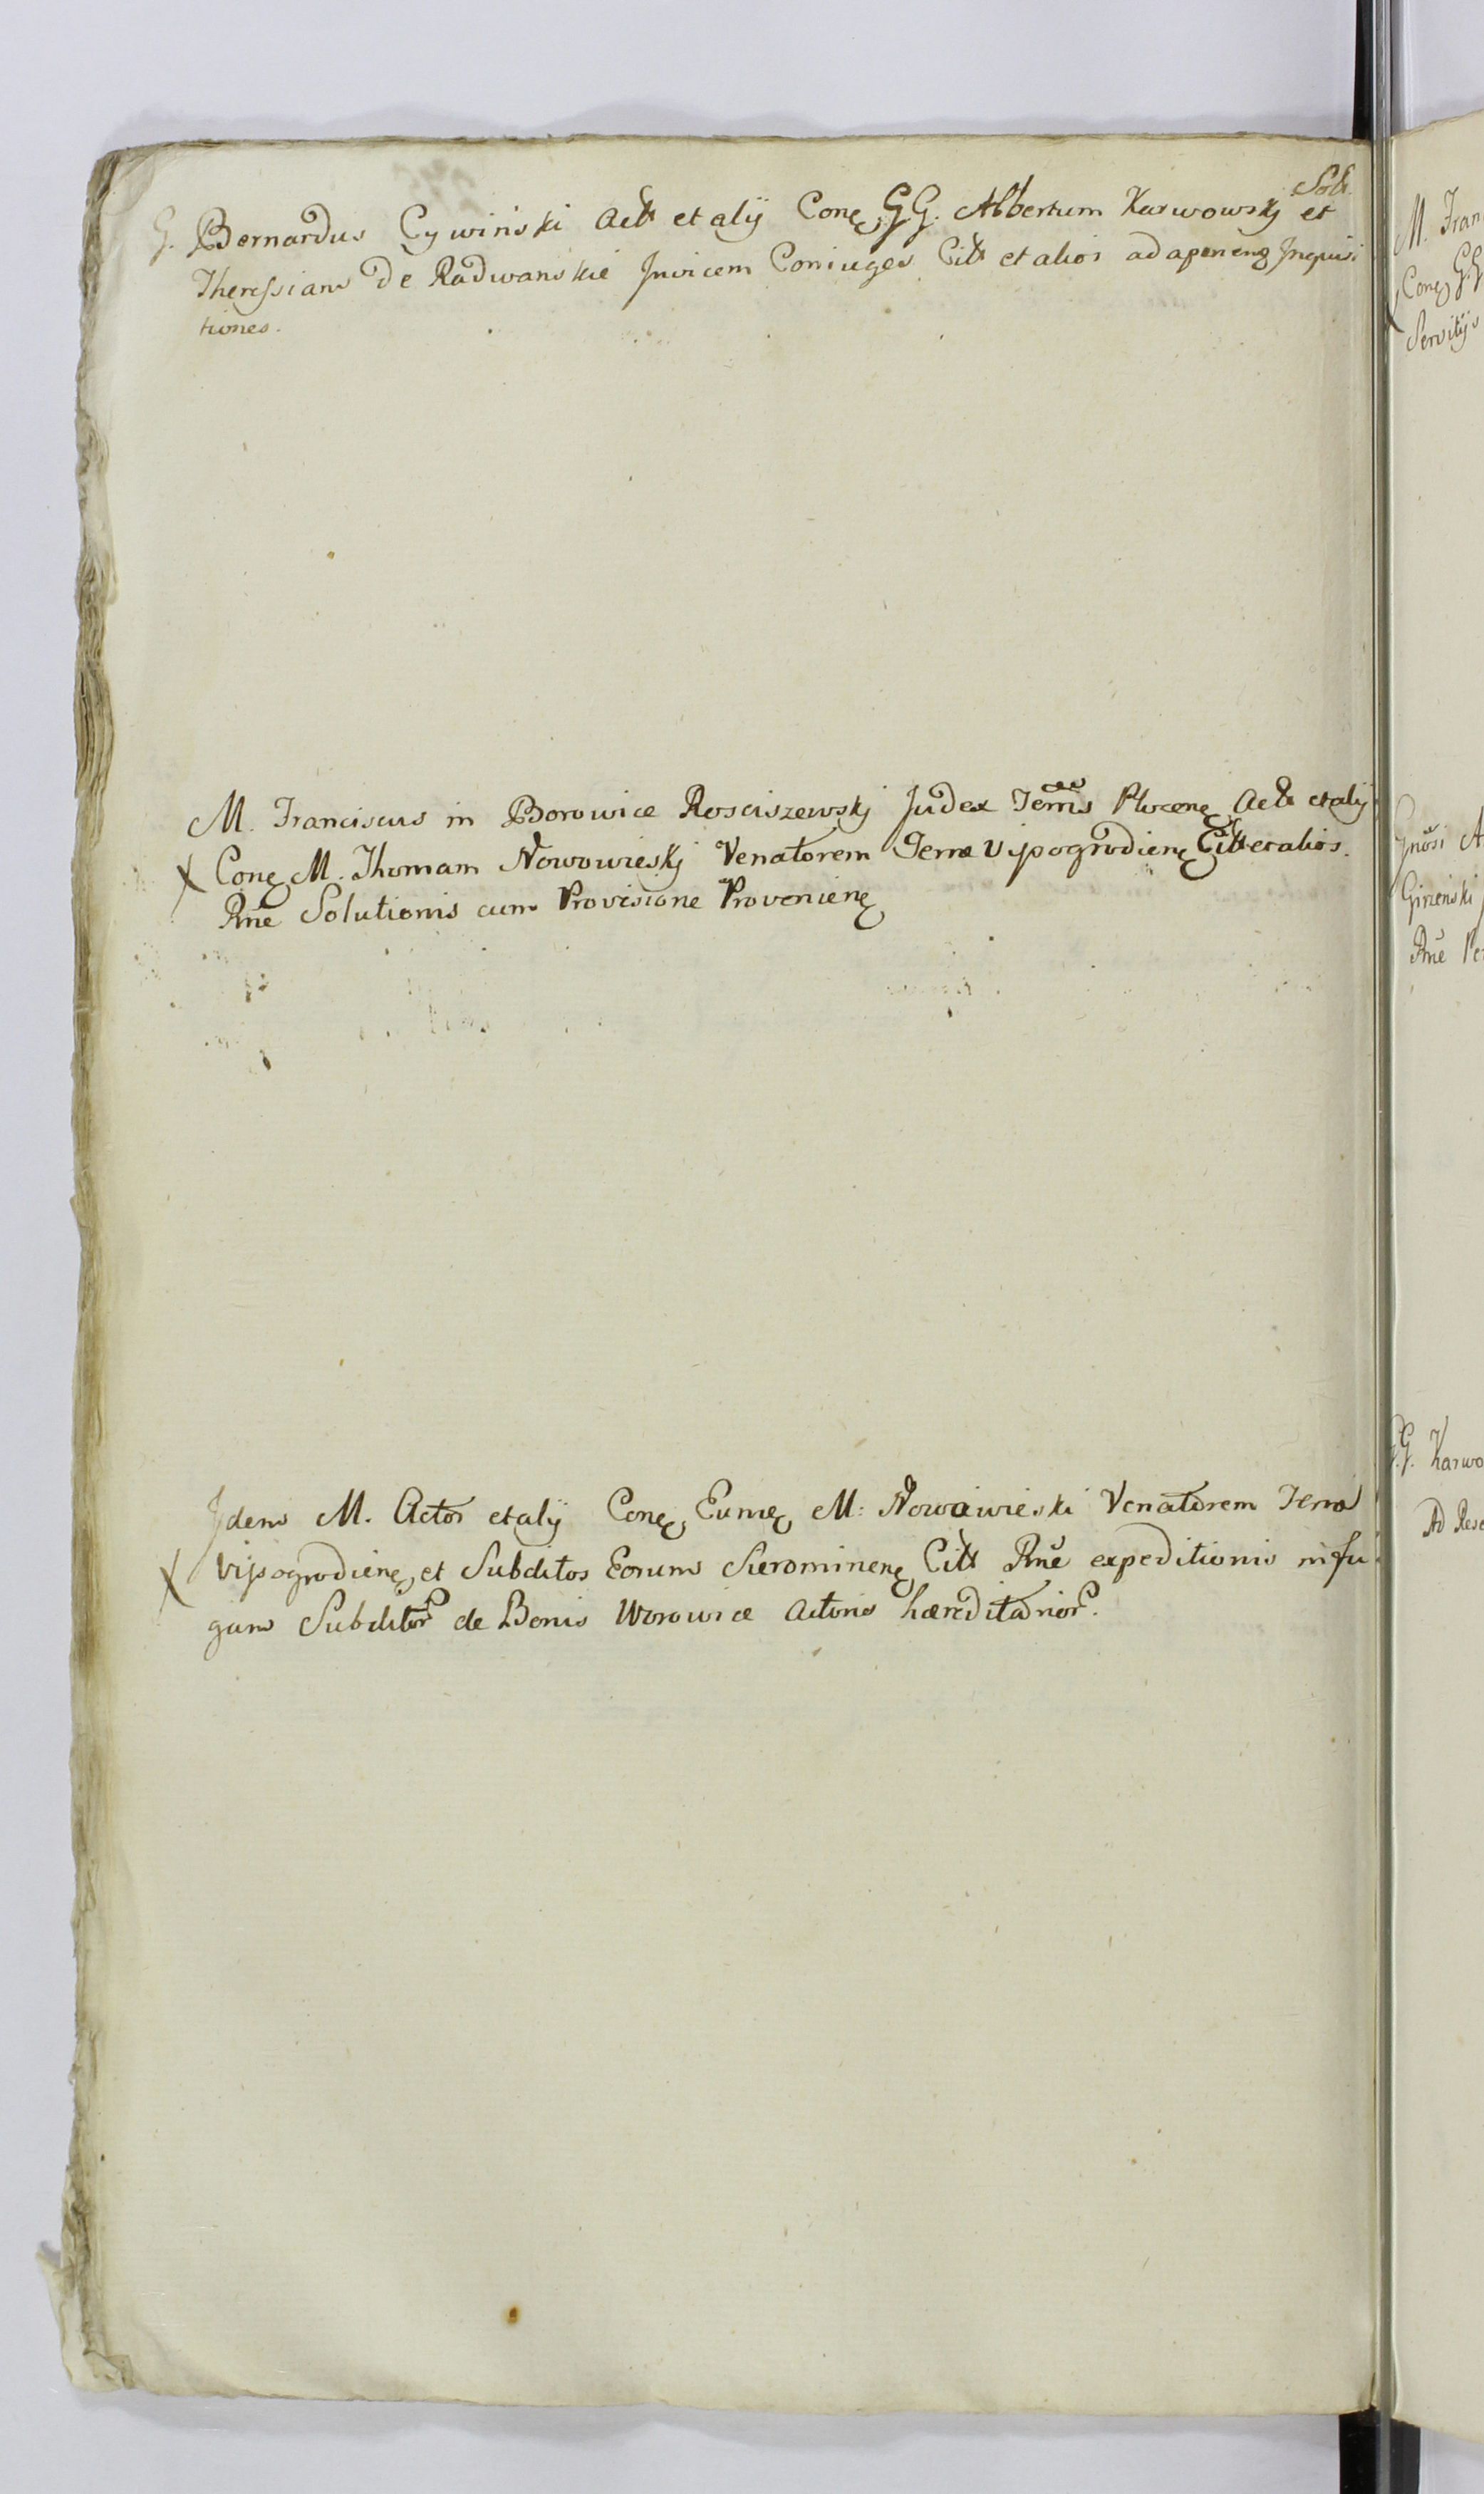 G. Bernardus Cywiński Actt et alÿ Conę GG. Albertum Karwowskÿ et
Theressiam De Radwanskie Invicem Coniuges Citt et alios ad apenenę Inquisi
tiones.
M. Franciscus in Borowice Rosciszewskj Judex Terris Plocenę Actt et alÿ
X Conę M. Thomam Nowowieskj Venatorem Terræ Vissogrodienę Citt et alios.
Rnê Solutionis cum Provisione Provenienę
Idem M. Actor et alÿ Conę Eumę M: Nowowieski Venatorem Terræ
X Vissogrodienę et Subditos Eorum Sierominenę Citt Rnê expeditionis in fu
gam Subditor de Bonis Worowice Actoris hæreditarior.
M. Fran
Conę GG
Servitÿs
Gnôsi A
Rnê
GG. Karwo
Ad Rese